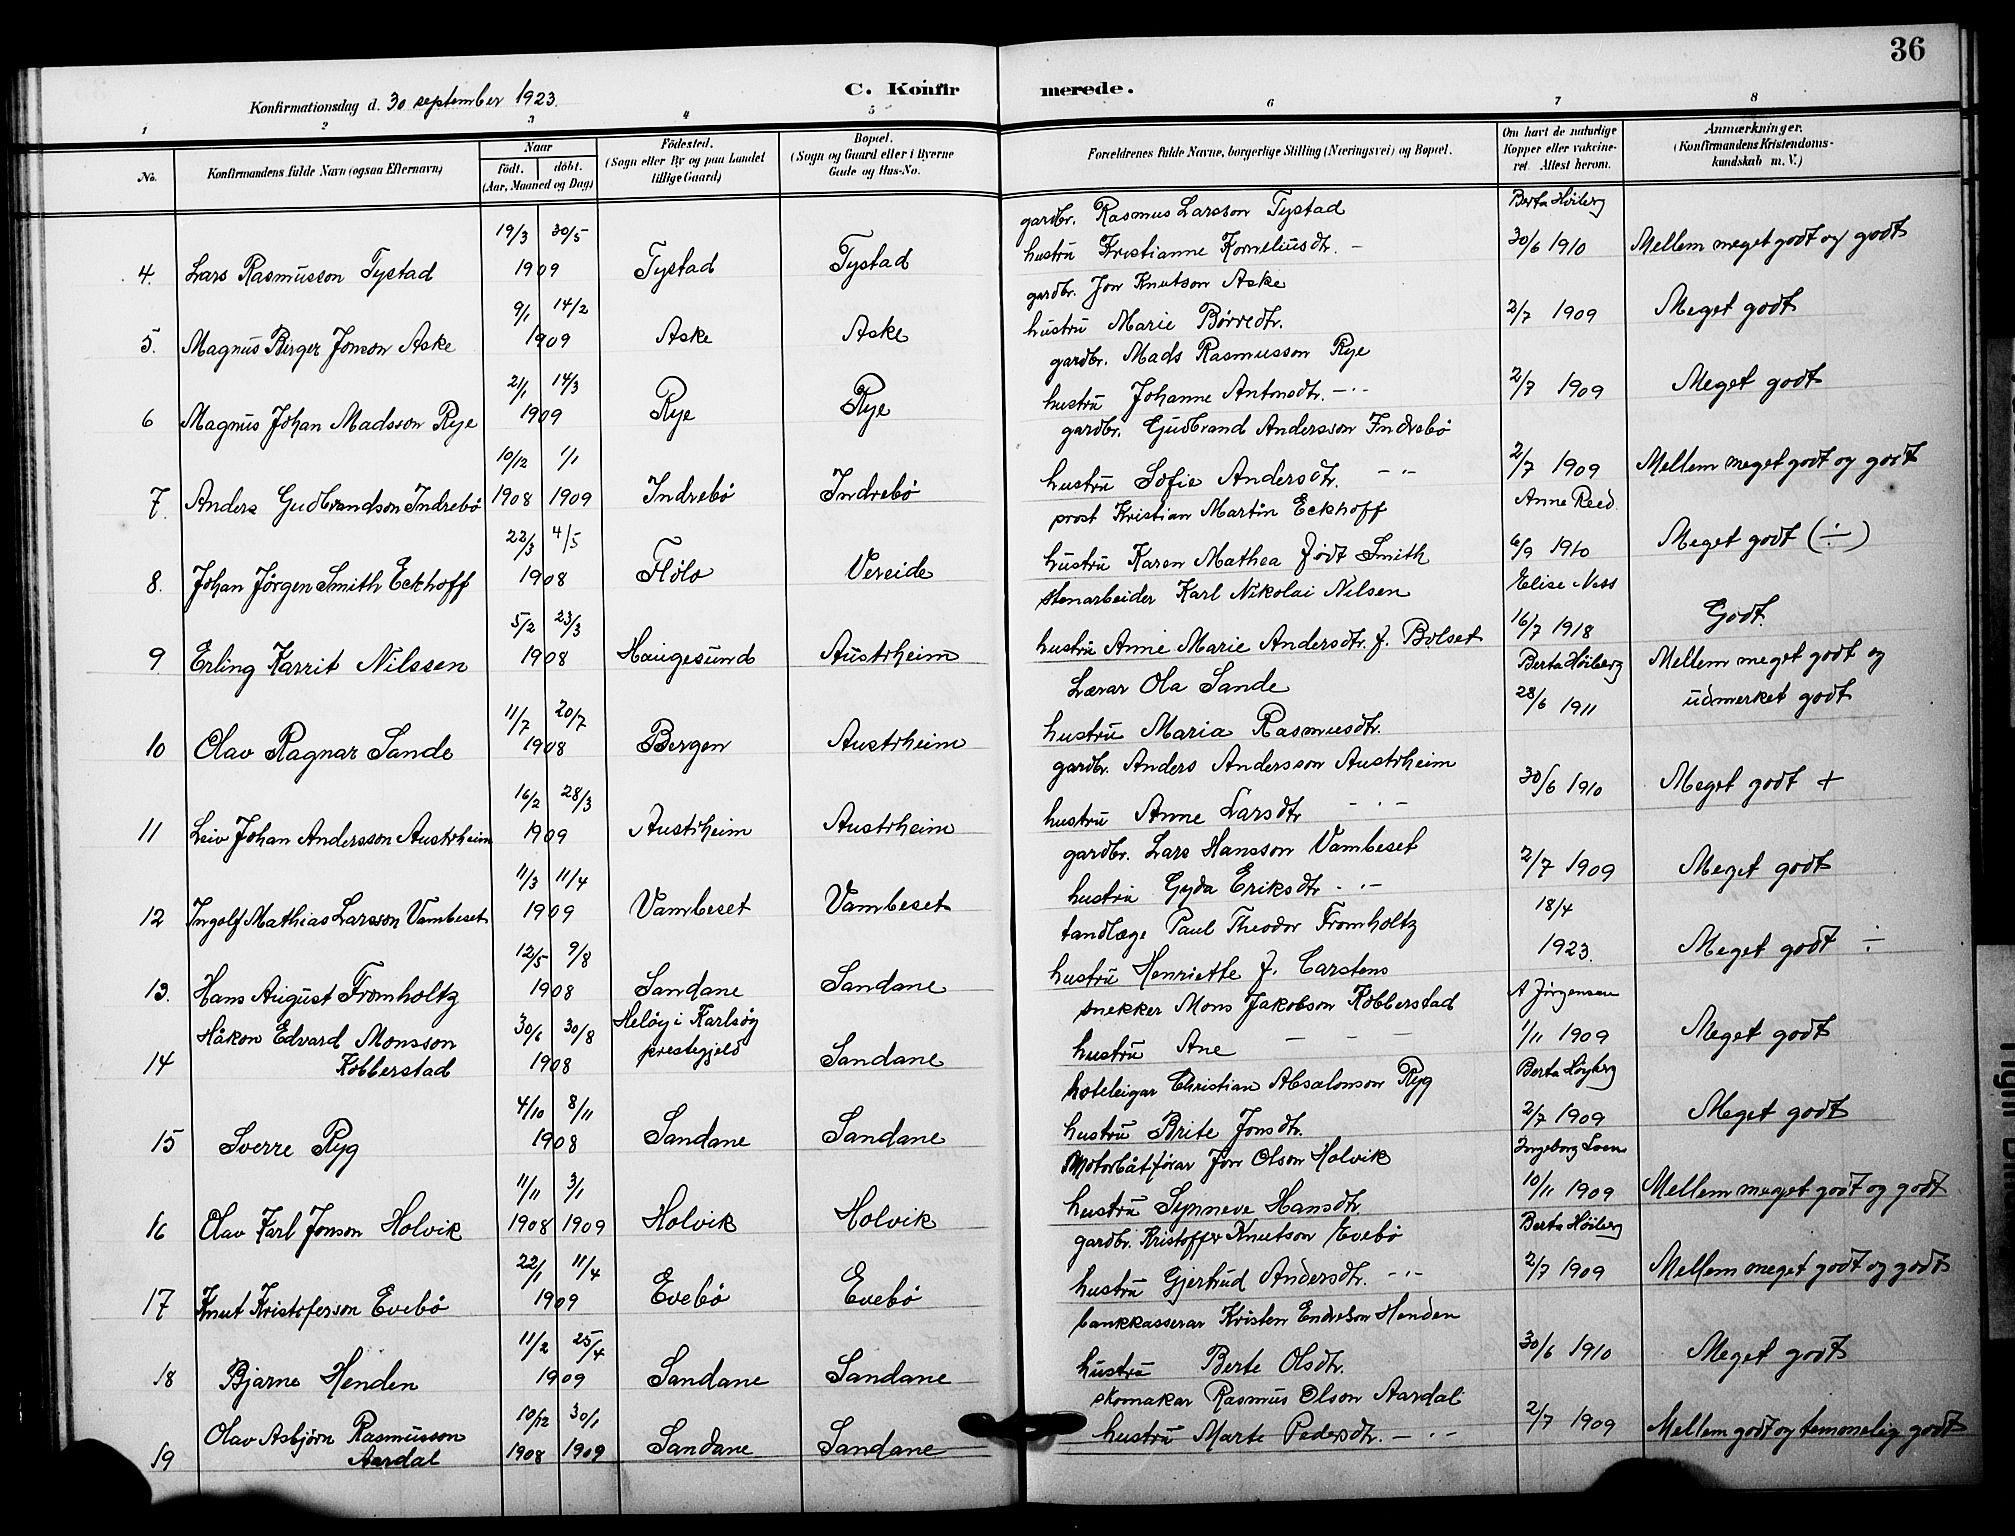 36
Konfirmationsdag d. 30 september 1923.
C. Konfirmerede.
1 2 3 4 5 6 7 8
No.
Konfirmandens fulde Navn (ogsaa Efternavn)
Naar
født. døbt.
(Aar, Maaned og Dag)
Fødested.
(Sogn eller By og paa Landet
tillige Gaard)
Bopæl.
(Sogn og Gaard eller i Byerne
Gade og Hus-No.
Forældrenes fulde Navne, borgerlige Stilling (Næringsvei) og Bopæl.
Om havt de naturlige
Kopper eller vaccine-
ret. Attest herom.
Anmærkninger.
(Konfirmandens Kristendoms-
kundskab m. V.)
gardbr. Rasmus Larsson Tystad Berta Høiberg
19/3 30/5 hustru Kristianne Korneliusdtr. - 30/6 1910 Mellem meget godt og godt
4. Lars Rasmusson Tystad 1909 Tystad Tystad
gardbr. Jon Knutson Aske
9/1 14/2 hustru Marie Børredtr. 2/7 1909 Meget godt
5. Magnus Birger Jonson Aske 1909 Aske Aske
gardbr. Mads Rasmusson Rye
2/1 14/3 hustru Johanne Antonsdtr. -"- 2/7 1909 Meget godt
6 Magnus Johan Madsson Rye 1909 Rye Rye
gardbr. Gudbrand Andersson Indrebø
10/12 1/1 hustru Sofie Andersdtr. -"- 2/7 1909 Mellem meget godt og godt
7. Anders Gudbrandson Indrebø 1908 1909 Indrebø Indrebø
prost Kristian Martin Eckhoff Anne Reed
22/3 4/5 hustru Karen Mathea født Smith 6/9 1910 Meget godt (÷)
8. Johan Jørgen Smith Eckhoff 1908 Florø Vereide
stenarbeider Karl Nikolai Nilsen Elise Ness
5/2 23/3 hustru Anne Marie Andersdtr. f. Bolset 16/7 1918 Godt.
9 Erling Karrit Nilssen 1908 Haugesund Austrheim
Lærar Ola Sande Berta Høiberg Mellem meget godt og
11/7 20/7 hustru Maria Rasmusdtr. 28/6 1911 udmerket godt
10 Olav Ragnar Sande 1908 Bergen Austrheim
gardbr. Anders Andersson Austrheim
16/2 28/3 hustru Anne Larsdtr -"- 30/6 1910 Meget godt +
11 Leiv Johan Andersson Austrheim 1909 Austrheim Austrheim
gardbr. Lars Hansson Vambeset
11/3 11/4 hustru Gyda Eriksdtr -"- 2/7 1909 Meget godt
12 Ingolf Mathias Larsson Vambeset 1909 Vambeset Vambeset
tandlæge Paul Theodor Fromholtz 18/4
12/5 9/8 hustru Henriette f. Carstens 1923. Meget godt ÷
13. Hans August Fromholtz 1908 Sandane Sandane
snekker Mons Jakobson Kobberstad A Jørgensen
Håkon Edvard Monsson 30/6 30/8 Heløy i Karlsøy hustru Ane - - 1/11 1909 Meget godt
14 Kobberstad 1908 prestegjeld Sandane
hoteleigar Christian Absalonson Ryg Berta Høyberg
4/10 8/11 hustru Brite Jonsdtr. 2/7 1909 Meget godt
15 Sverre Ryg 1908 Sandane Sandane
Motorbåtførar Jon Olson Holvik Ingeborg Loen
11/11 3/1 hustru Synneve Hansdtr 10/11 1909 Mellem meget godt og godt
16 Olav Karl Jonson Holvik 1908 1909 Holvik Holvik
gardbr. Kristoffer Knutson Evebø Berta Høiberg
22/1 11/4 hustru Gjertrud Andersdtr. -"- 2/7 1909 Mellem meget godt og godt
17 Knut Kristoferson Evebø 1909 Evebø Evebø
bankkasserar Kristen Endreson Henden
11/2 25/4 hustru Berte Olsdtr. 30/6 1910 Meget godt
18 Bjarne Henden 1909 Sandane Sandane
skomakar Rasmus Olson Aardal
Olav Asbjørn Rasmusson 10/12 30/1 hustru Marte Pedersdtr. -"- 2/7 1909 Mellem godt og temmelig godt
19 Aardal 1908 1909 Sandane Sandane